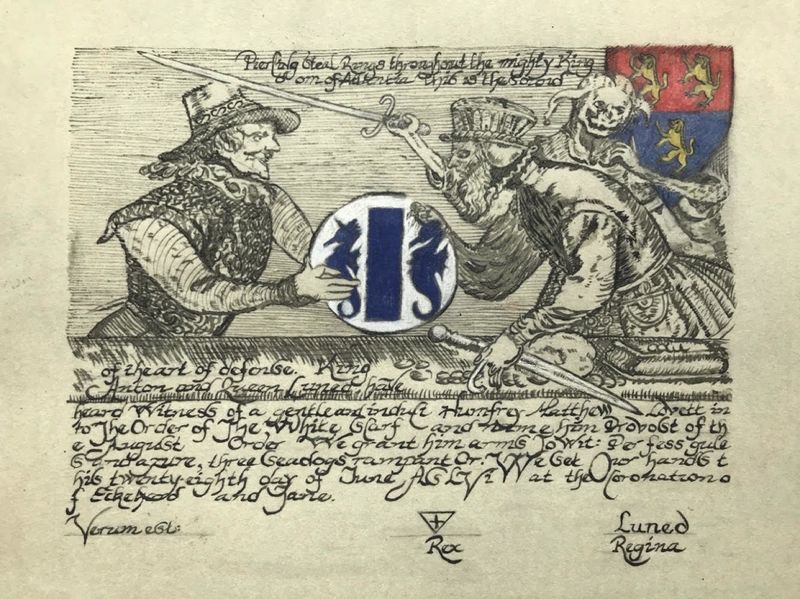 Piercing Steal Rings throughout the mighty King
dom of Adentia This is the sword
of iheart of defense. King
Anton and Queen Luned have
heard Witness of a gentle and induct Humfrey Matthew Lovett in
to The Order of The White Scarf and name him Provost of th
e August Order We grant him arms To Wit: Per fess gule
s and azure, three seadogs rampant Or. We Set Our hands t
his twenty-eighth day of June, AS LVI at the Coronation o
f and Jane.
Verum est:
Rex
Luned
Regina